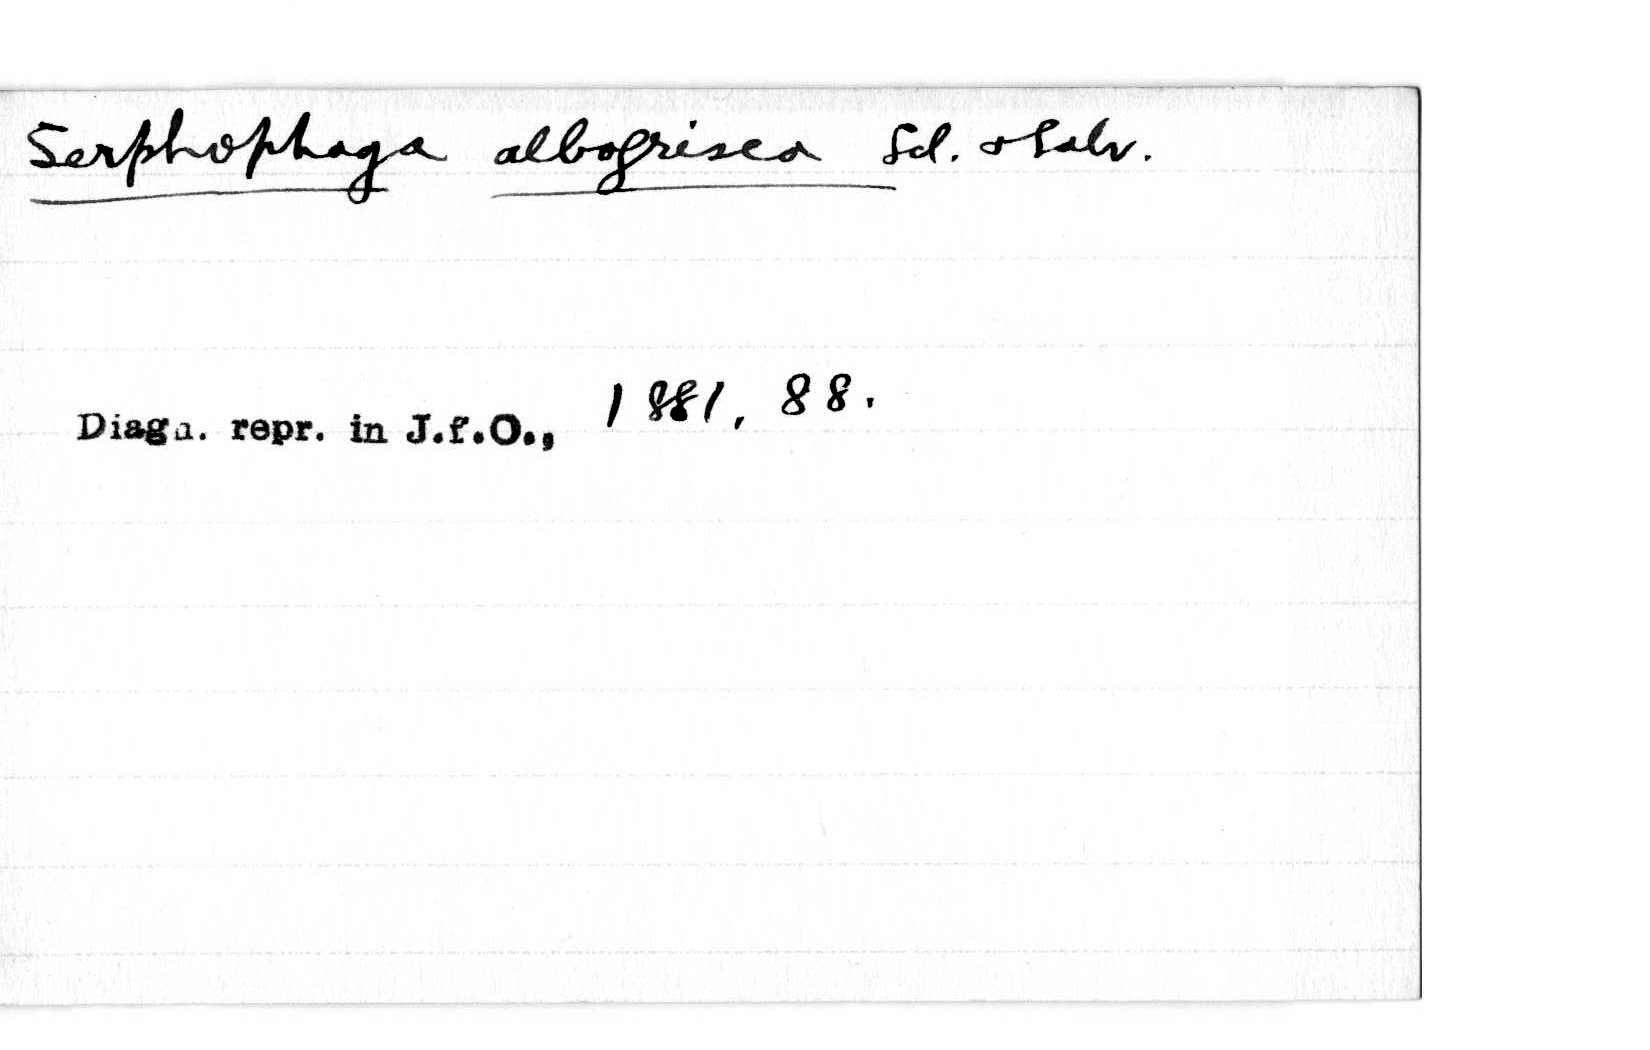 Serphophaga albogrisea Scl. & Salv.
Diagn. repr. in J.f.O., 1881, 88.